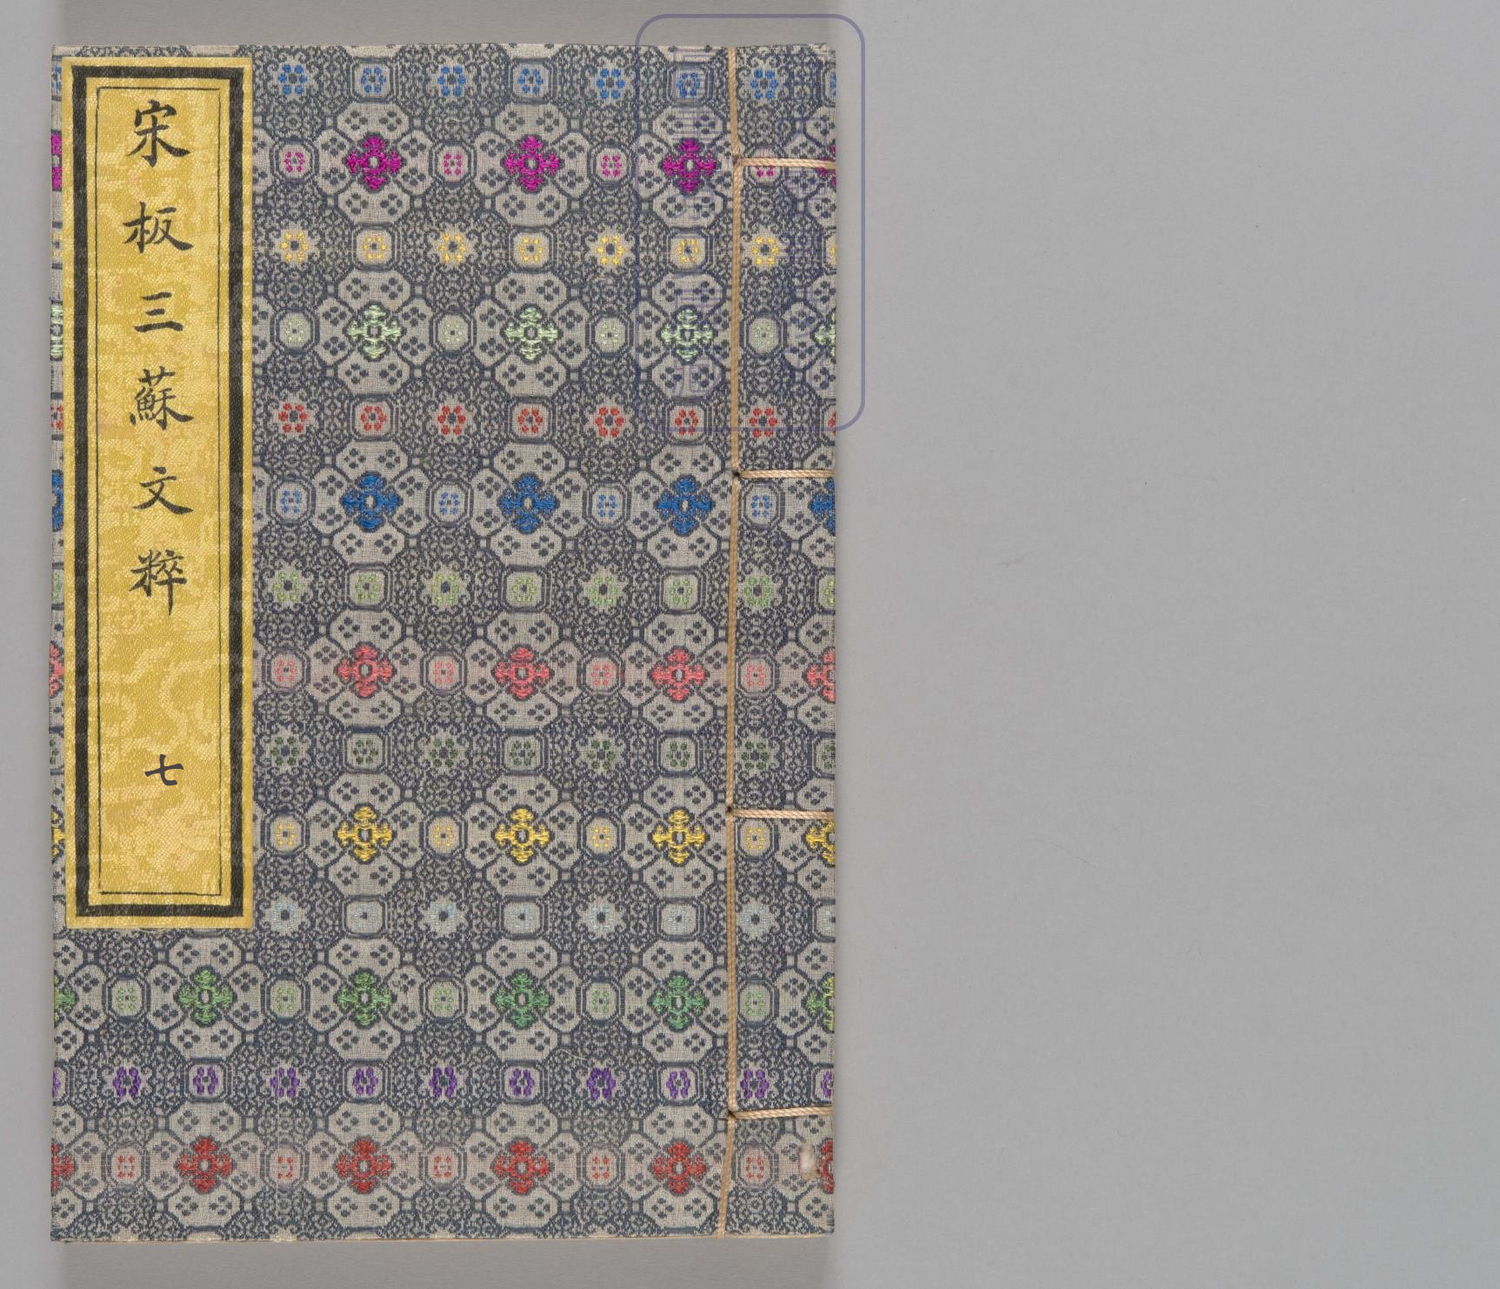 宋板三蘇文粹 七